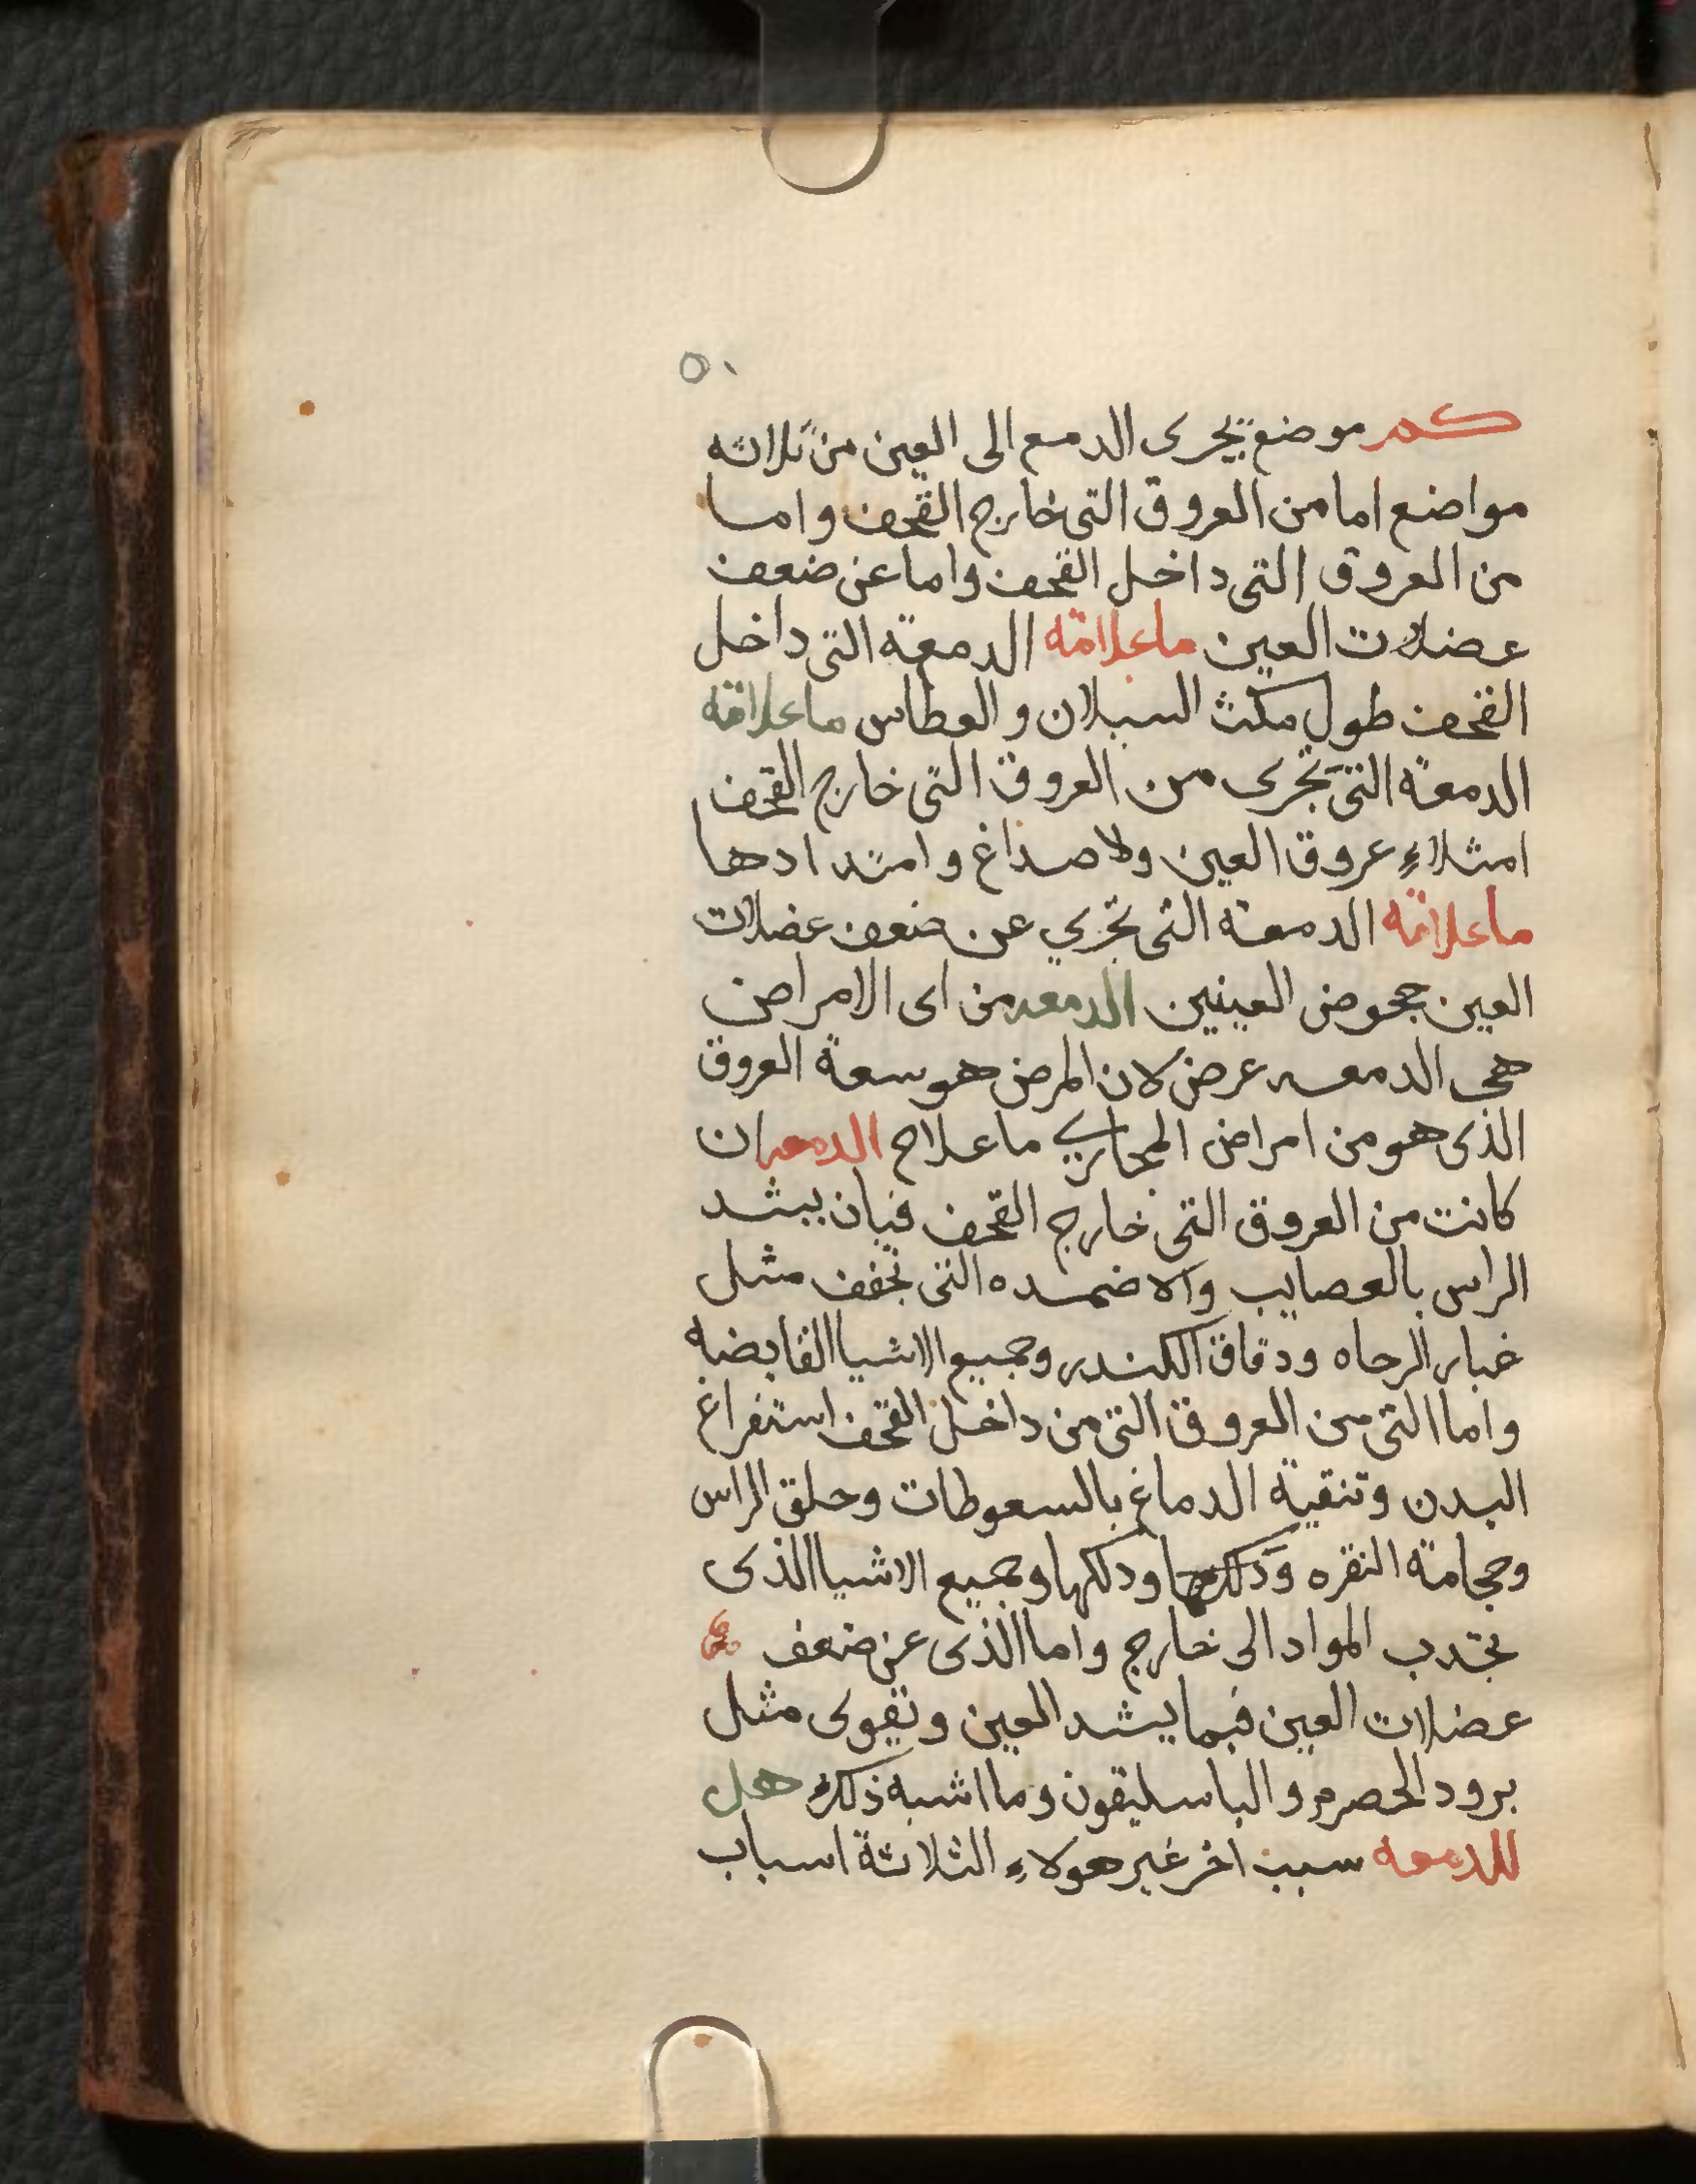 ٥٠
كم موضع يجرى الدمع الى العين من ثلاثه
مواضع اما من العروق التى خارج القحف واما
من العروق التى داخل القحف واما عن ضعف
عضلات العين ما علامة الدمعة التى داخل
القحف طول مكث السيلان والعطاس ما علامة
الدمعة التى تجرى من العروق التى خارج القحف
امتلاء عروق العين ولاصداغ وامتدادها
ما علامة الدمعة التى تجري عن ضعف عضلات
العين جحوض العينين الدمعه من اى الامراض
هى الدمعه عرض لان المرض هو سعة العروق
الذى هو من امراض المجاري ما علاج الدمعه ان
كانت من العروق التى خارج القحف فبان يشد
الراس بالعصايب والاضمده التى تجفف مثل
غبار الرحاه ودقاق الكندر وجميع الاشيا القابضه
واما التى من العروق التى من داخل القحف استفراغ
البدن وتنقية الدماغ بالسعوطات وحلق الراس
وحجامة النقره ودلكها وجميع الاشيا الذى
تجدب المواد الى خارج واما الذى عن ضعف
عضلات العين فبما يشد العين وتقوى مثل
برود الحصرم والباسليقون وما اشبه ذلك هل
للدمعه سبب اخر غير هولاء الثلاثة اسباب